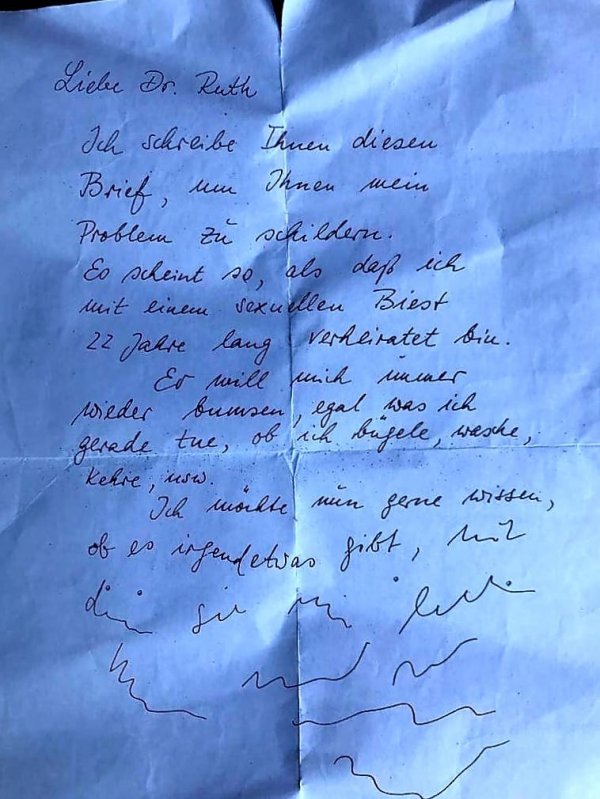 Liebe Dr. Ruth
Ich schreibe Ihnen diesen
Brief, um Ihnen mein
Problem zu schildern.
Es scheint so, als daß ich
mit einem sexuellen Biest
22 Jahre lang verheiratet bin.
Er will mich immer
wieder bumsen, egal was ich
gerade tue, ob ich bügele, wasche,
kehre, usw.
Ich möchte nun gerne wissen,
ob es irgendetwas gibt,